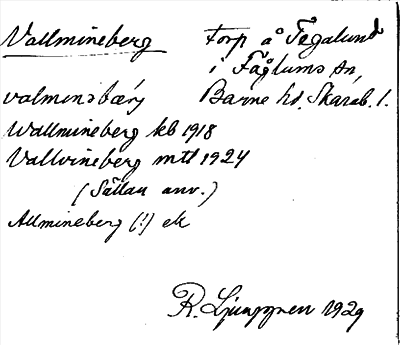 Vallmineberg Torp å Tegalund
i Fåglums sn,
valmensbærj Barne hd. Skarab. l.
Wallmineberg kb 1918
Vallvineberg mtl 1924
(Sällan anv.)
Allmineberg (!) ek
R. Ljunggren 1929